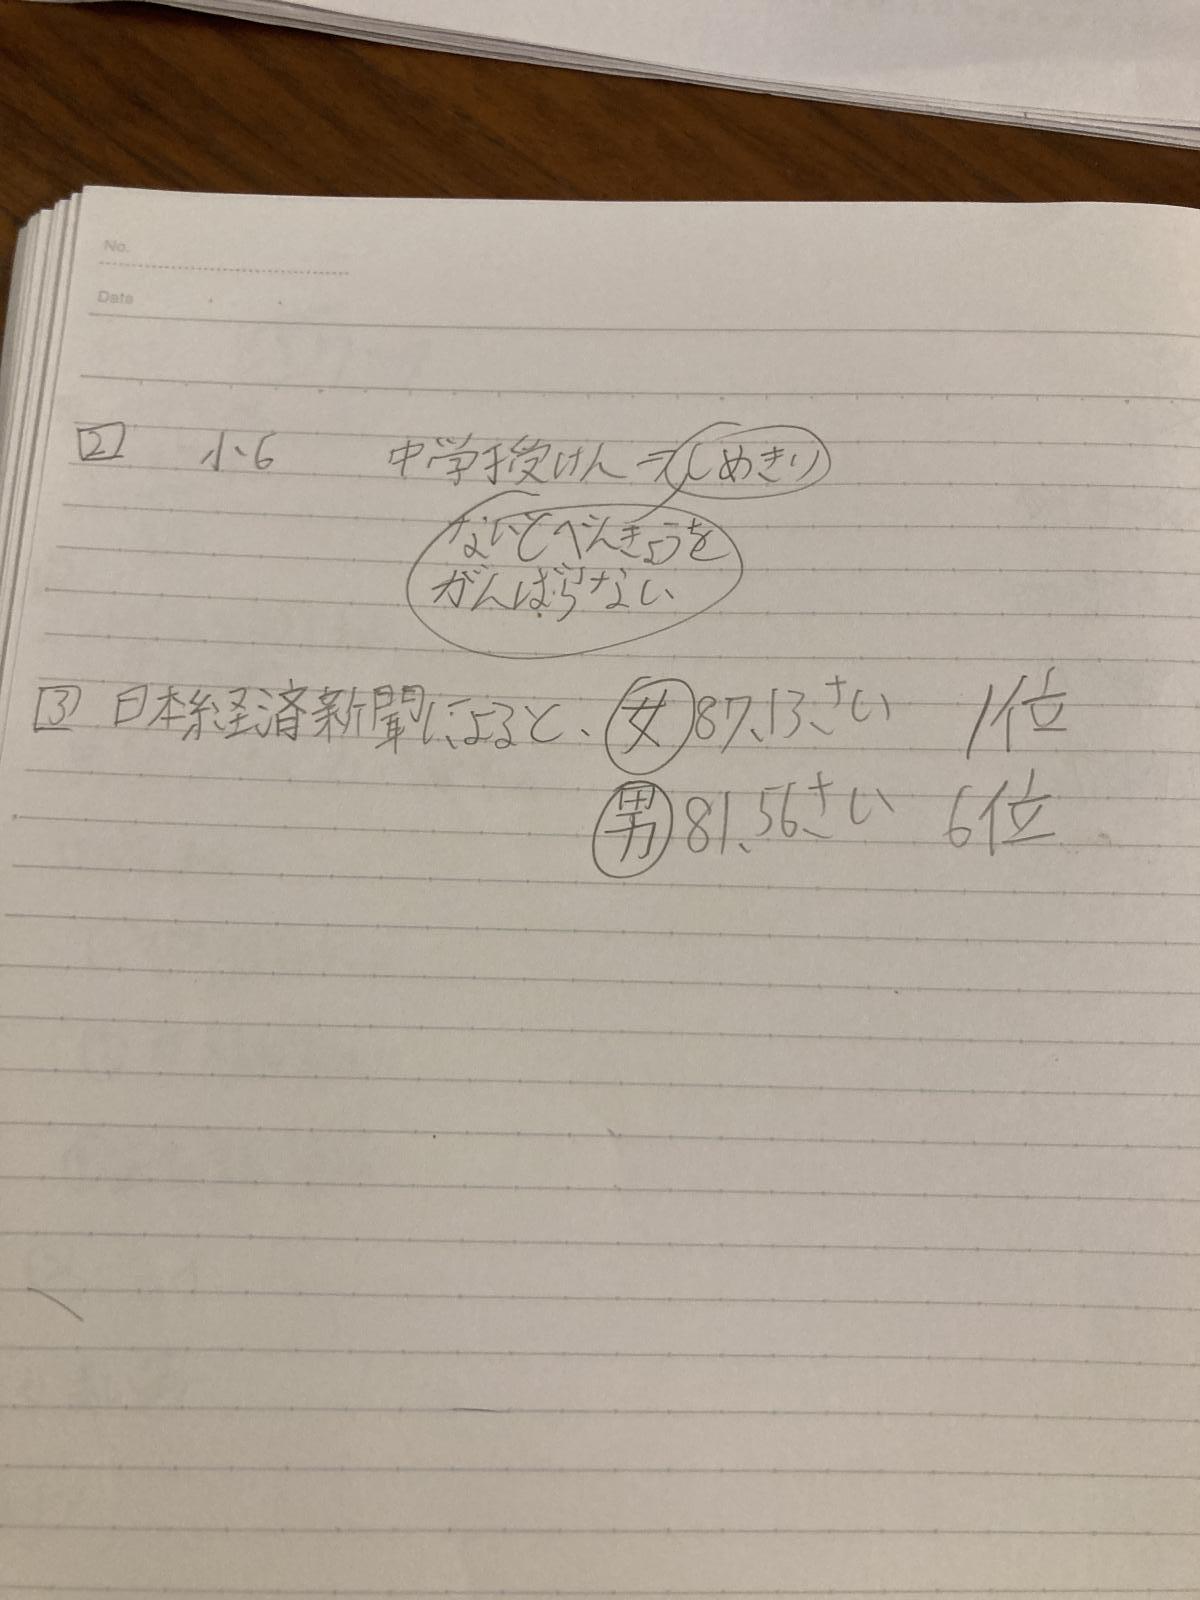 No.
Date
2 小6 中学受けん → しめきり
ないとべんきょうを
がんばらない
3 日本経済新聞によると、女 87、13さい 1位
男 81、56さい 6位